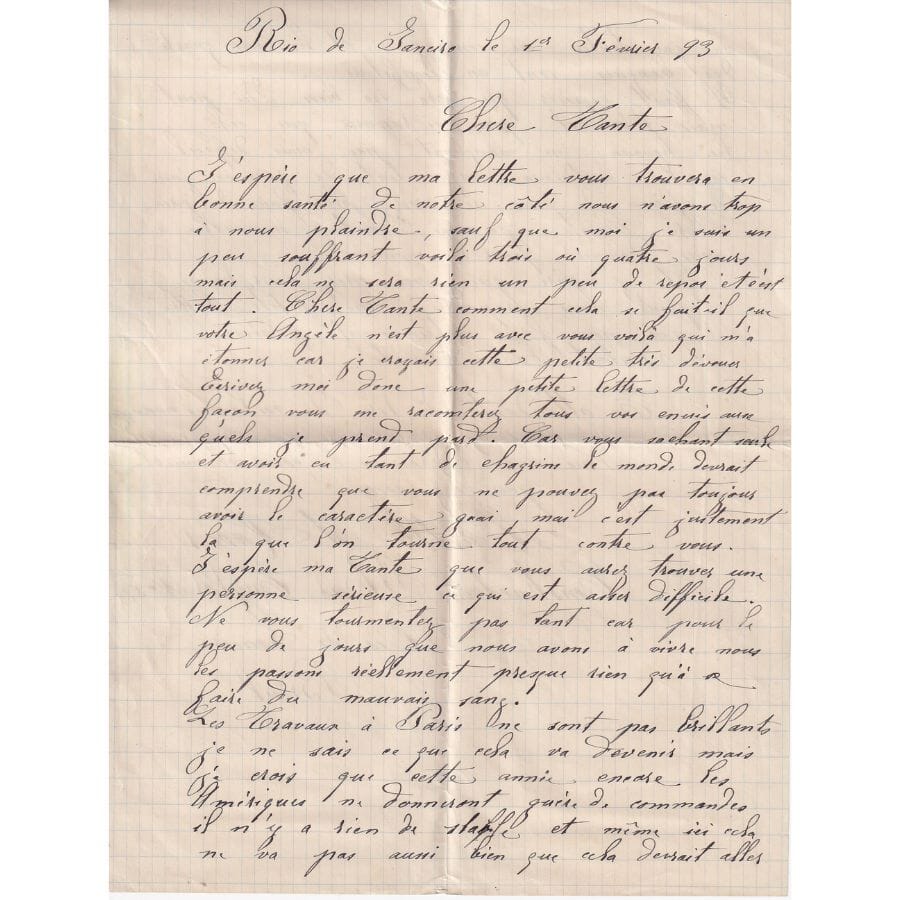 Rio de Janeiro le 1er Février 93
Chere Tante
J'espère que ma lettre vous trouvera en
bonne santé de notre côté nous n'avons trop
à nous plaindre, sauf que moi je suis un
peu souffrant voilà trois ou quatre jours
mais cela ne sera rien un peu de repos et c'est
tout. Chere Tante comment cela se fait il que
votre Angèle n'est plus avec vous voilà qui m'a
étonner car je croyais cette petite très dévouer
Ecrivez moi donc une petite lettre de cette
façon vous me raconterez tous vos ennuis aux
quels je prend pard. Car vous sachant seule
et avoir eu tant de chagrins le monde devrait
comprendre que vous ne pouvez pas toujour
avoir le caractère guai mai c'est justement
la que l'on tourne tout contre vous.
J'espère ma Tante que vous aurez trouver une
personne sérieuse ce qui est assez difficile.
Ne vous tourmentez pas tant car pour le
peu de jours que nous avons à vivre nous
les passons réellement presque rien qu'à se
faire du mauvais sang.
Les Travaux à Paris ne sont pas brillants
je ne sais ce que cela va devenir mais
je crois que cette année encore les
Amériques ne donneront guère de commandes
il n'y a rien de stable et même ici cela
ne va pas aussi bien que cela devrait aller